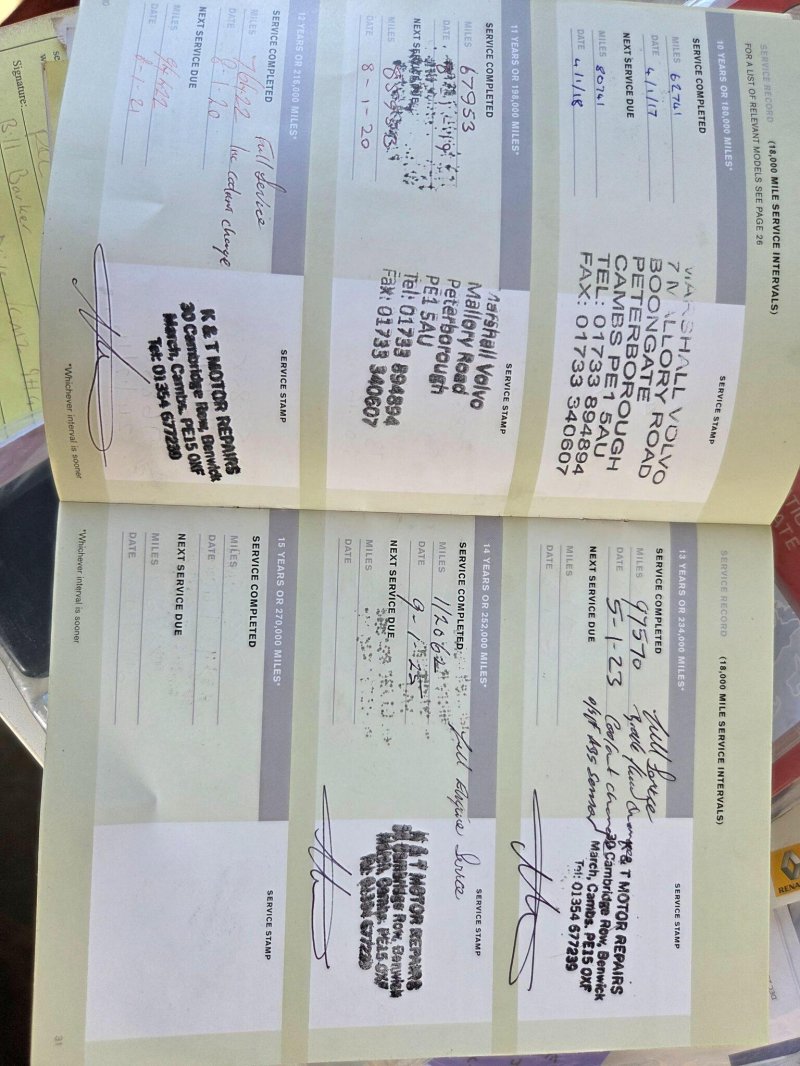 SERVICE RECORD (18,000 MILE SERVICE INTERVALS)
FOR A LIST OF RELEVANT MODELS SEE PAGE 26
10 YEARS OR 180,000 MILES*
SERVICE COMPLETED
MILES 62741
DATE 4/1/17
NEXT SERVICE DUE
MILES 80741
DATE 4/1/18
SERVICE STAMP
MARSHALL VOLVO
7 MALLORY ROAD
BOONGATE
PETERBOROUGH
CAMBS PE1 5AU
TEL: 01733 894894
FAX: 01733 340607
11 YEARS OR 198,000 MILES*
SERVICE COMPLETED
MILES 67953
DATE
NEXT SERVICE DUE
MILES
DATE 8-1-20
SERVICE STAMP
Marshall Volvo
Mallory Road
Peterborough
PE1 5AU
Tel: 01733 894894
Fax: 01733 340607
12 YEARS OR 216,000 MILES*
SERVICE COMPLETED Full Service
MILES
DATE 8-1-20 change
NEXT SERVICE DUE
MILES
DATE 8-1-21
SERVICE STAMP
K & T MOTOR REPAIRS
30 Cambridge Row, Benwick
March, Cambs. PE15 0XF
Tel: 01354 677239
*Whichever interval is sooner
30
SERVICE RECORD (18,000 MILE SERVICE INTERVALS)
13 YEARS OR 234,000 MILES*
SERVICE COMPLETED Full Service
MILES 97570 fluid change
DATE 5-1-23 Coolant change
NEXT SERVICE DUE ABS Sensor
MILES
DATE
SERVICE STAMP
& T MOTOR REPAIRS
30 Cambridge Row, Benwick
March, Cambs. PE15 0XF
Tel: 01354 677239
14 YEARS OR 252,000 MILES*
SERVICE COMPLETED Full Engine Service
MILES 112062
DATE 9-1-25
NEXT SERVICE DUE
MILES
DATE
SERVICE STAMP
K & T MOTOR REPAIRS
30 Cambridge Row, Benwick
March, Cambs. PE15 0XF
Tel: 01354 677239
15 YEARS OR 270,000 MILES*
SERVICE COMPLETED
MILES
DATE
NEXT SERVICE DUE
MILES
DATE
SERVICE STAMP
*Whichever interval is sooner
31
Signature:
Bill Barker
RENAULT